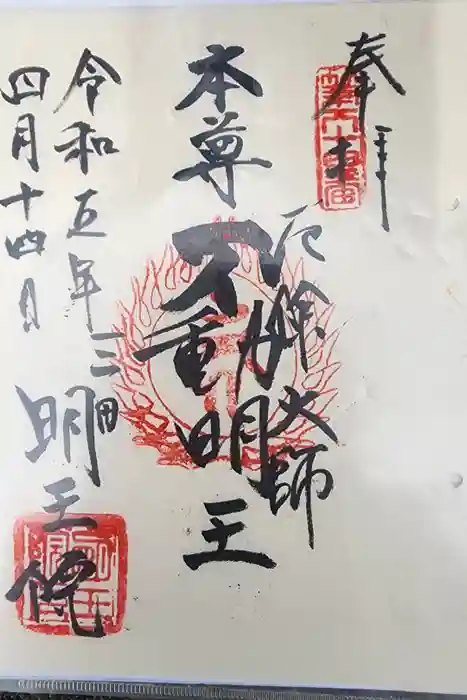 奉拝
厄除大師
本尊
不動明王
令和五年
四月十四日
三田
明王院